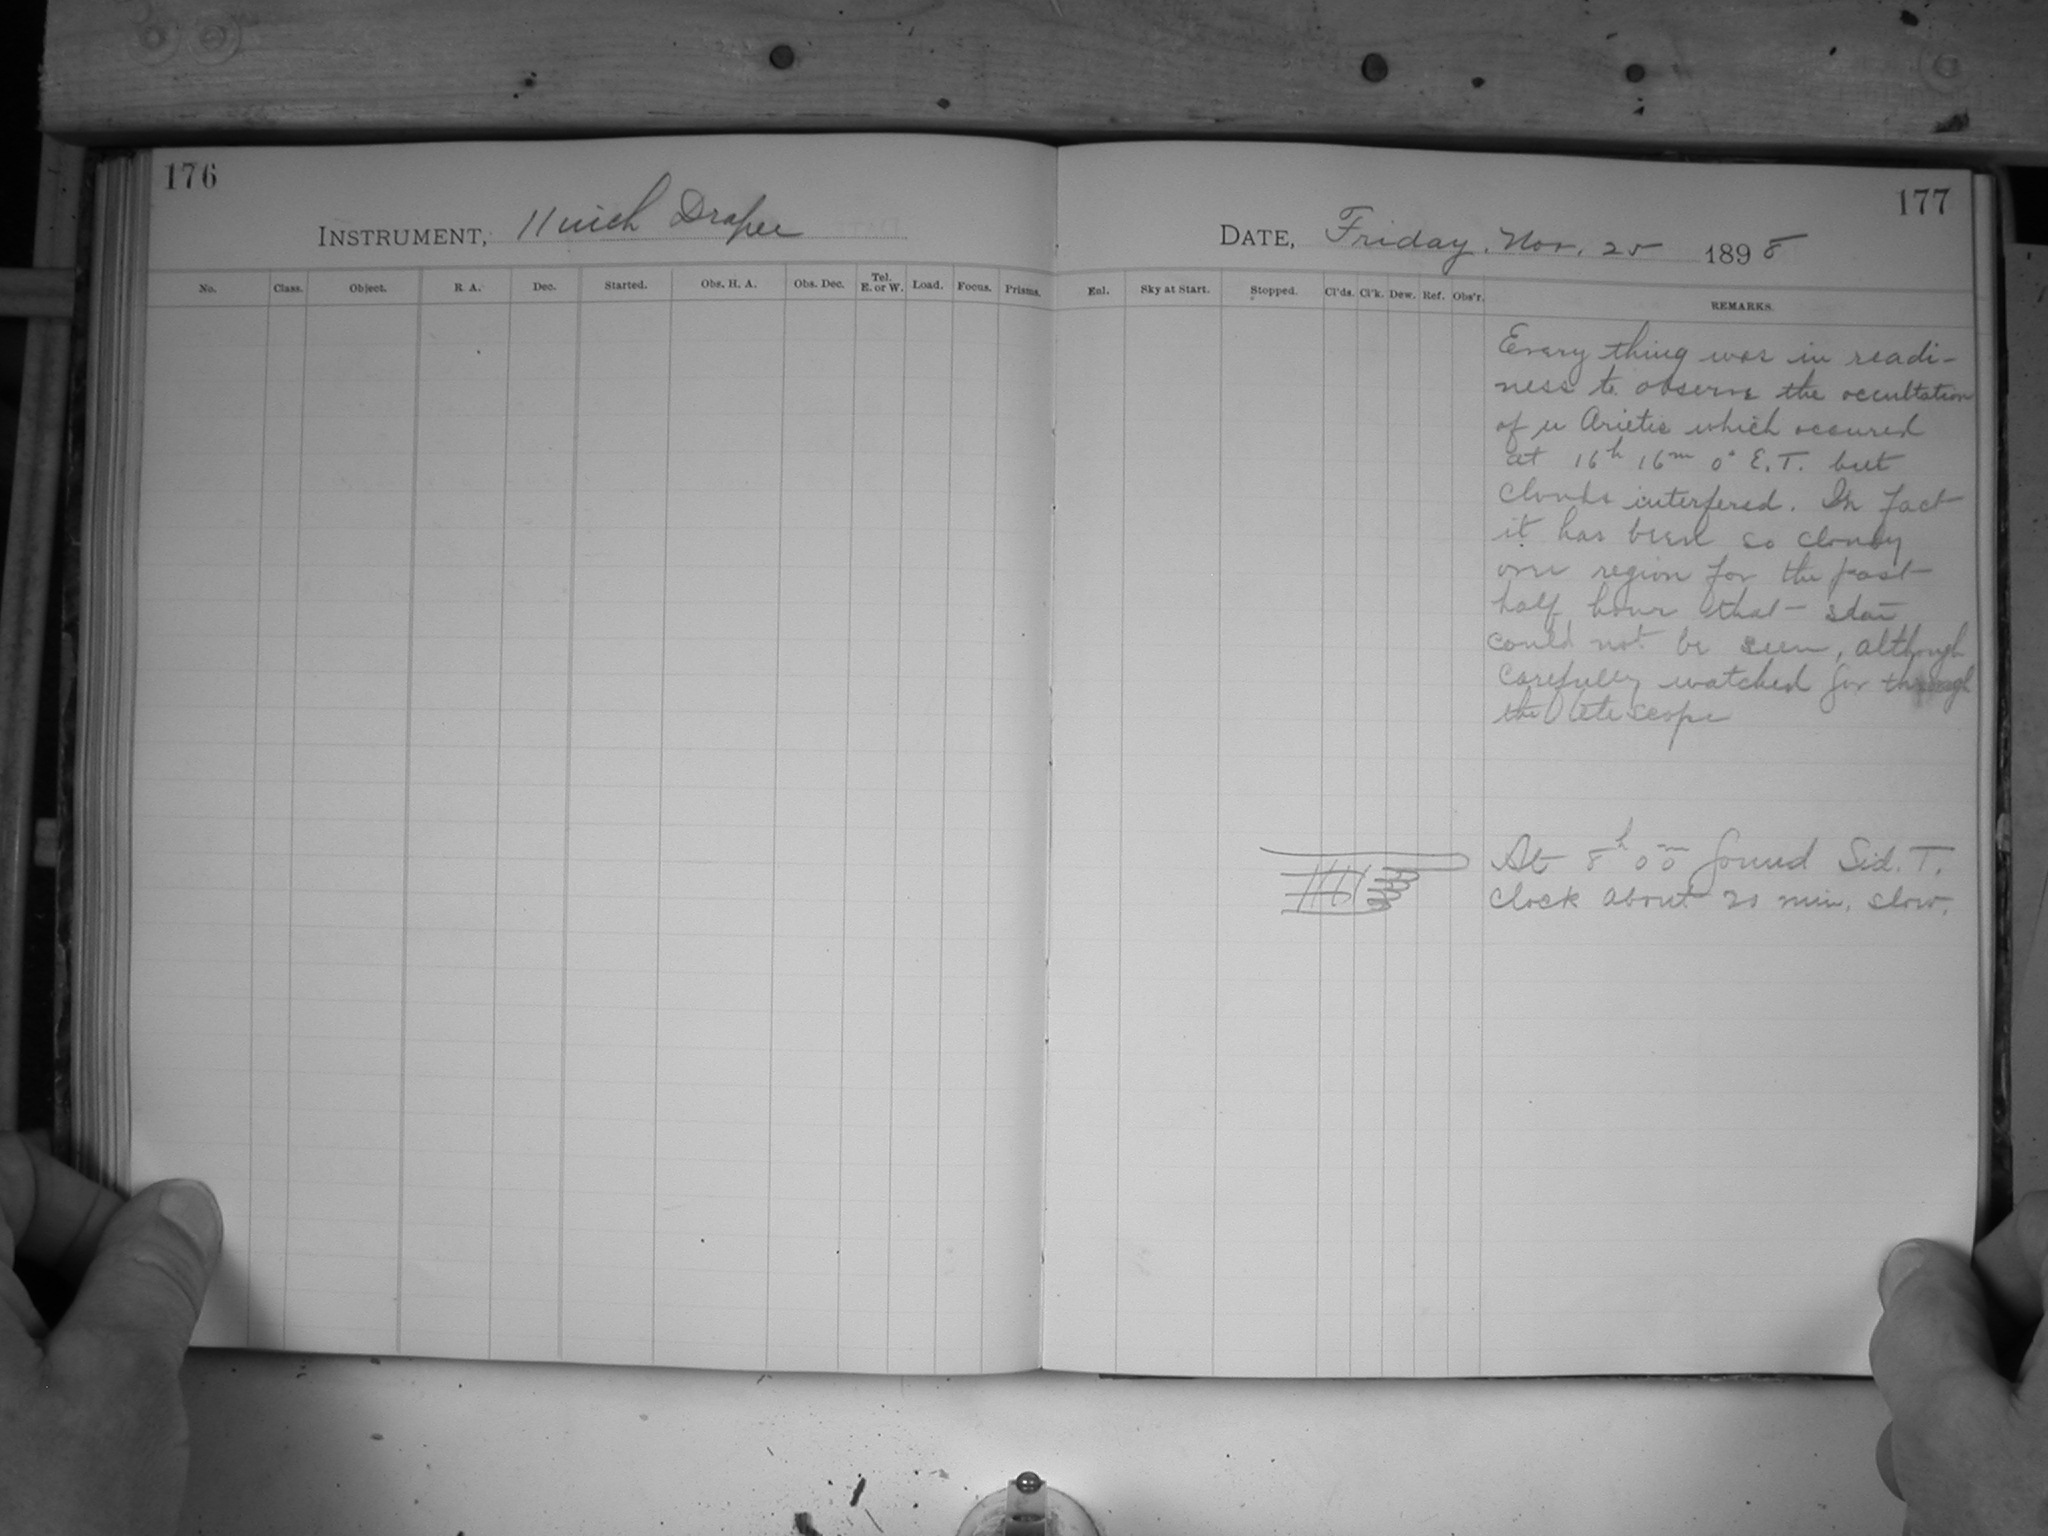 176
INSTRUMENT, 11 inch Draper
No. Class. Object. R. A. Dec. Started. Obs. H. A. Obs. Dec. Tel. E. or W. Load. Focus. Prisms.
177
DATE, Friday. Nov. 25 1898
Enl. Sky at Start. Stopped. Cl'ds. Cl'k. Dew. Ref. Obs'r. REMARKS.
Every thing was in readi-
ness to observe the occultation
of u Arietis which occured
at 16h 16m 0s E.T. but
Clouds interfered. In fact
it has been so cloudy
over region for the past
half hour that star
could not be seen, although
carefully watched for through
the telescope
At 8h 00m found Sid. T.
Clock about 20 min. slow.